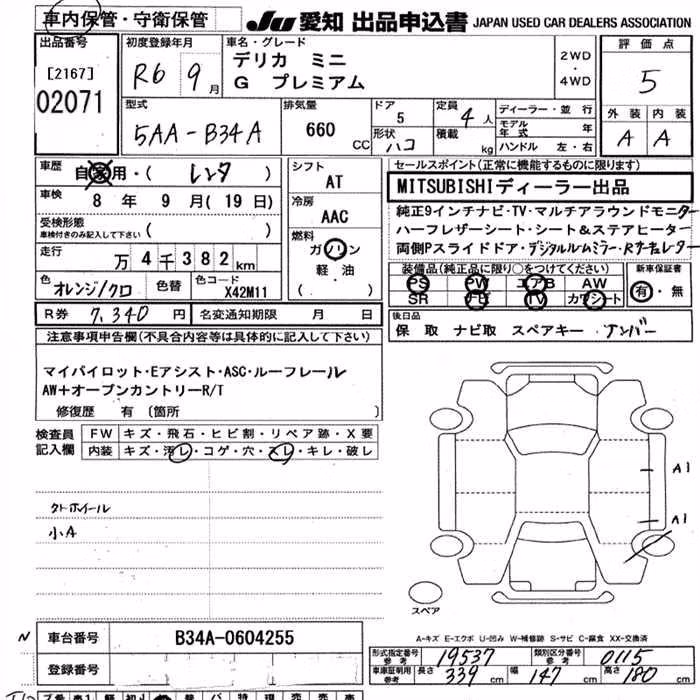 車内保管・守衛保管
JU 愛知 出品申込書 JAPAN USED CAR DEALERS ASSOCIATION
出品番号
[2167]
02071
初度登録年月
R6 9月
車名・グレード
デリカ ミニ
G プレミアム
2WD
・
4WD
評価点
5
外装 内装
A A
型式
5AA-B34A
排気量
660 CC
ドア
5
形状
ハコ
定員
4人
積載 kg
ディーラー・並行
モデル年式 年
ハンドル 左・右
車歴 自家用・( レンタ )
車検 8年 9月(19日)
受検形態 ( )
車検付きのみ記入して下さい
走行 万4千382km
色 オレンジ/クロ 色替
色コード X42M11
シフト
AT
冷房
AAC
燃料
ガソリン
軽・油
( )
セールスポイント(正常に機能するものに限ります)
MITSUBISHIディーラー出品
純正9インチナビ・TV・マルチアラウンドモニター
ハーフレザーシート・シート&ステアヒーター
両側Pスライドドア・デジタルルームミラー・Rサーキュレーター
装備品(純正品に限り○をつけてください)
PS PW エアB AW
SR ナビ TV カワシート
新車保証書
有・無
R券 7,340円
名変通知期限 月 日
後日品
保 取 ナビ取 スペアキー ナンバー
注意事項申告欄(不具合内容等は具体的に記入して下さい)
マイパイロット・Eアシスト・ASC・ルーフレール
AW+オープンカントリーR/T
修復歴 有〔箇所 〕
検査員記入欄
FW キズ・飛石・ヒビ割・リペア跡・X要
内装 キズ・汚レ・コゲ・穴・スレ・キレ・破レ
クトホイール
小A
A1
A1
スペア
A-キズ E-エクボ U-凹み W-補修跡 S-サビ C-腐食 XX-交換済
N
車台番号 B34A-0604255
登録番号
型式指定番号 参考 19537
類別区分番号 参考 0115
車車証明用 参考 長さ 339cm 幅 147cm 高さ 180cm